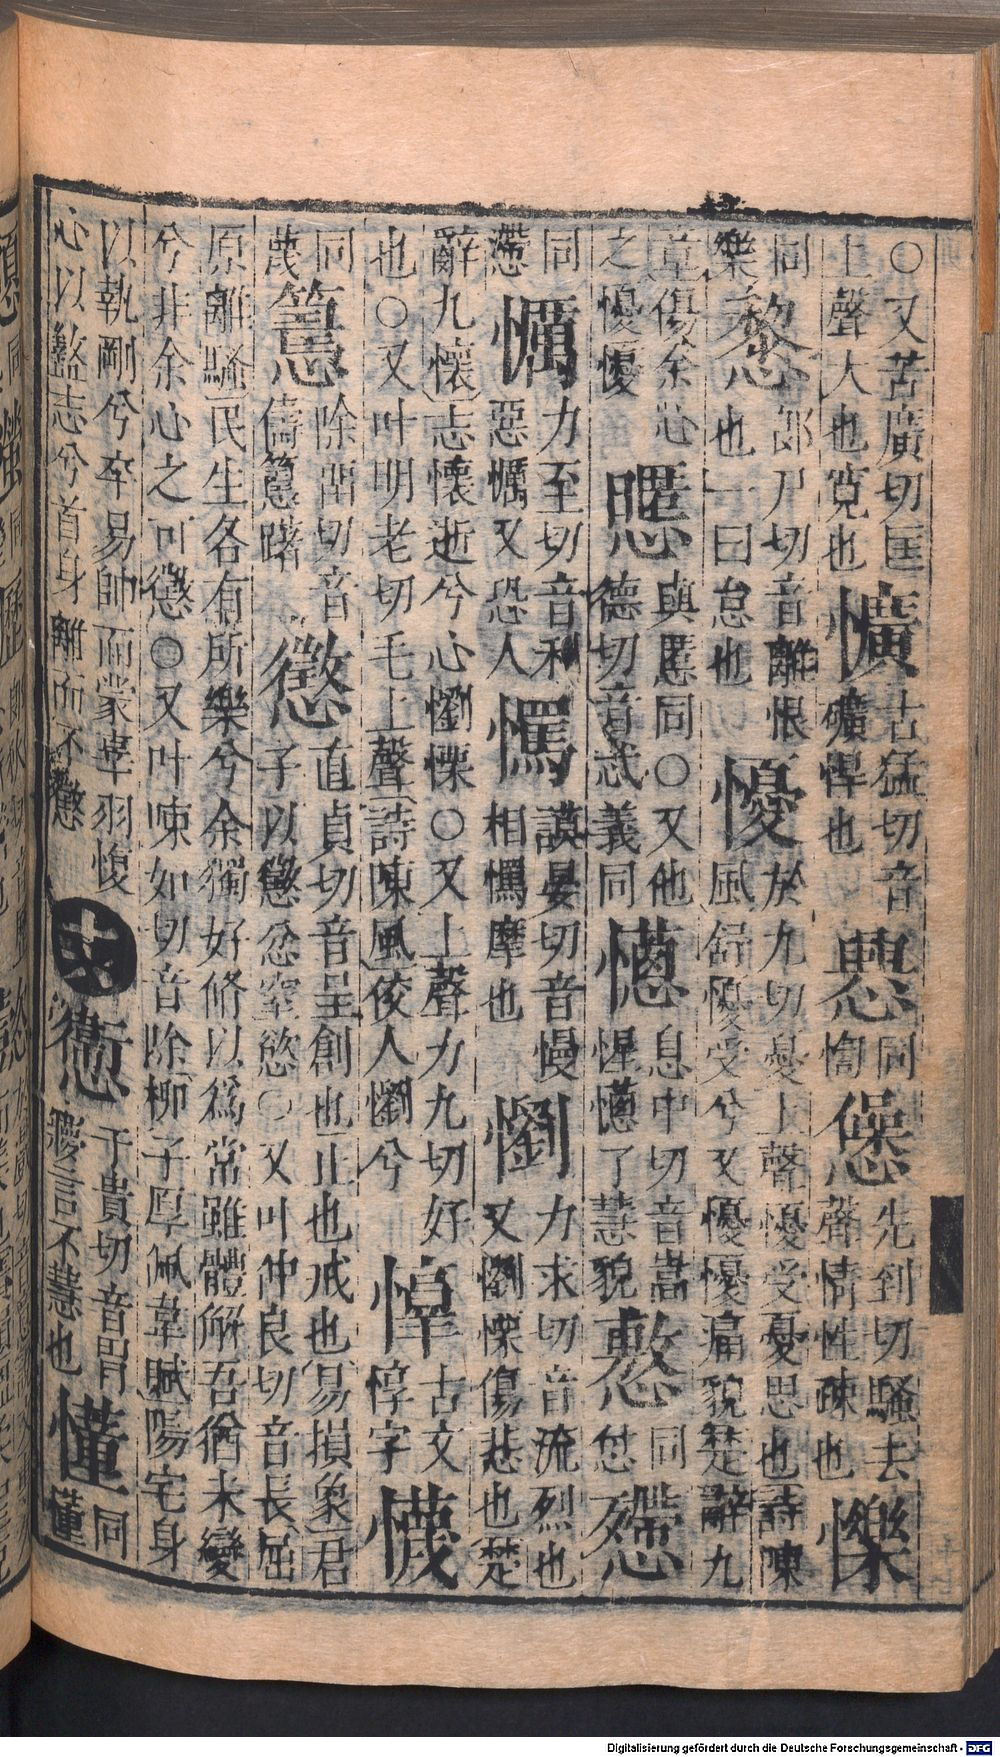 ○又苦廣切匡
上聲大也寛也
懭
古猛切音
礦悍也
㥣
同
㤘
㥒
先到切騷去
聲情性疎也
㦡
同
樂
𢤂
郎尸切音離恨
也一曰怠也
懮
於九切憂上聲懮受憂思也詩陳
風舒懮受兮又懮懮痛貌楚辭九
章傷余心
之懮懮
㥾
與慝同○又他
德切音忒義同
憽
息中切音嵩
惺憽了慧貌
憗
同
㤙
㱯
同
懘
㦢
力至切音利
惡㦢又恐人
𢣘
謨晏切音慢
相𢣘摩也
懰
力求切音流烈也
又懰慄傷悲也楚
辭九懷志懷逝兮心懰慄○又上聲力九切好
也○又叶明老切毛上聲詩陳風佼人懰兮
惇
古文
惇字
懱
同
蔑
𢤀
除留切音
儔𢤀躇
懲
直貞切音呈創也止也戒也易損象君
子以懲忿窒慾○又叶仲良切音長屈
原離騷民生各有所樂兮余獨好脩以爲常雖體解吾猶未變
兮非余心之可懲○又叶陳如切音除柳子厚佩韋賦陽宅身
以執剛兮卒易帥而蒙辜羽愎
心以盭志兮首身離而不懲
十六
𢥏
于貴切音胃
寱言不慧也
懂
同
懂
Digitalisierung gefördert durch die Deutsche Forschungsgemeinschaft - DFG